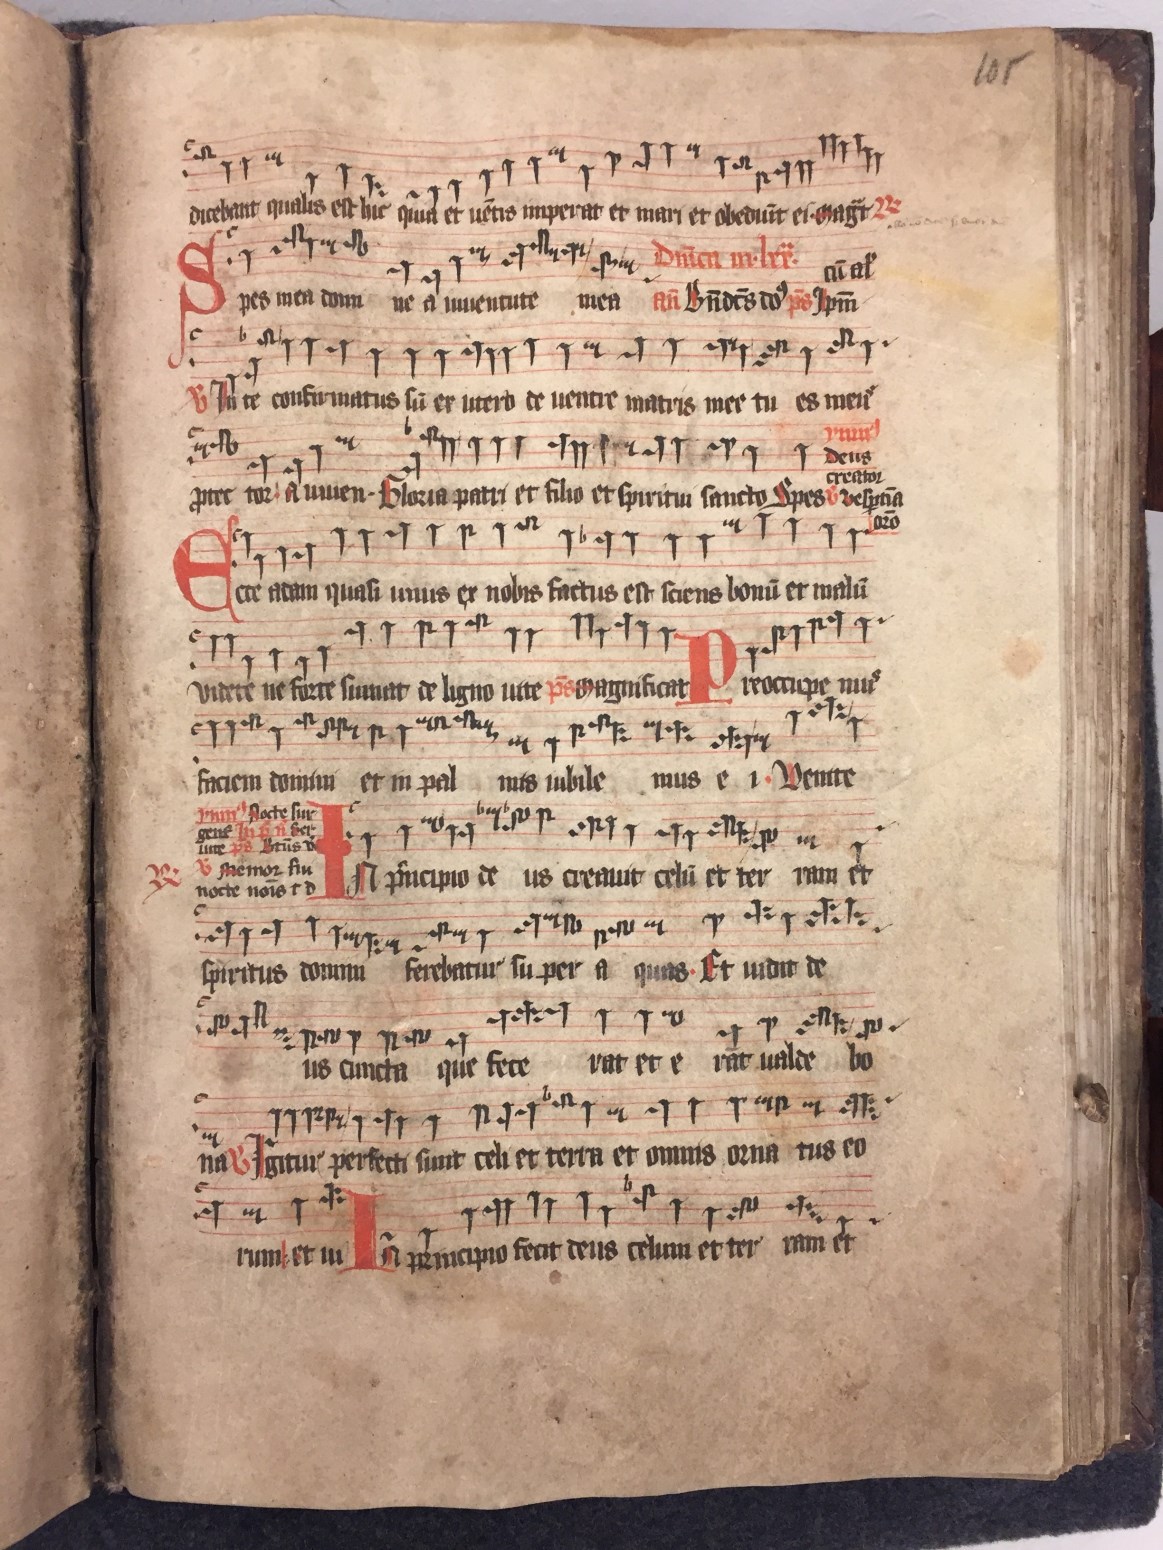 105
dicebant qualis est hic quia et uētis imperat et mari et obediūt ei. magt̄ R
Spes mea domi ne a iuuentute mea Dn̄ica in lxx cū al'
an̄ Bn̄dc̄s do9 ps̄ Ip̄m
V In te confirmatus sū ex utero de uentre matris mee tu es meus
protec tor. A iuuen. Gloria patri et filio et spiritui sancto Spes
ymn9
deus
creator
V vesp̄tīa
orō
Ecce adam quasi unus ex nobis factus est sciens bonū et malū
videte ne forte sumat de ligno uite ps̄ magnificat Preoccupe mus
faciem domini et in psal mis iubile mus e i. Venite
ymn9 Nocte sur
gens In ser
uite ps̄ Btūs v
V Memor fui
nocte noīs t d
R IN prīncipio de us creauit celū et ter ram et
spiritus domini ferebatur su per a quas. Et uidit de
us cuncta que fece rat et e rāt ualde bo
na V Igitur perfecti sunt celi et terra et omnis orna tus eo
rum. et ui In principio fecit deus celum et ter ram et